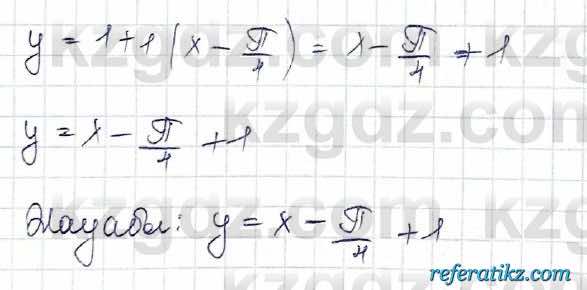 y = 1 + 1 (x - π/4) = x - π/4 + 1
y = x - π/4 + 1
Жауабы: y = x - π/4 + 1
kzgdz.com
referatikz.com